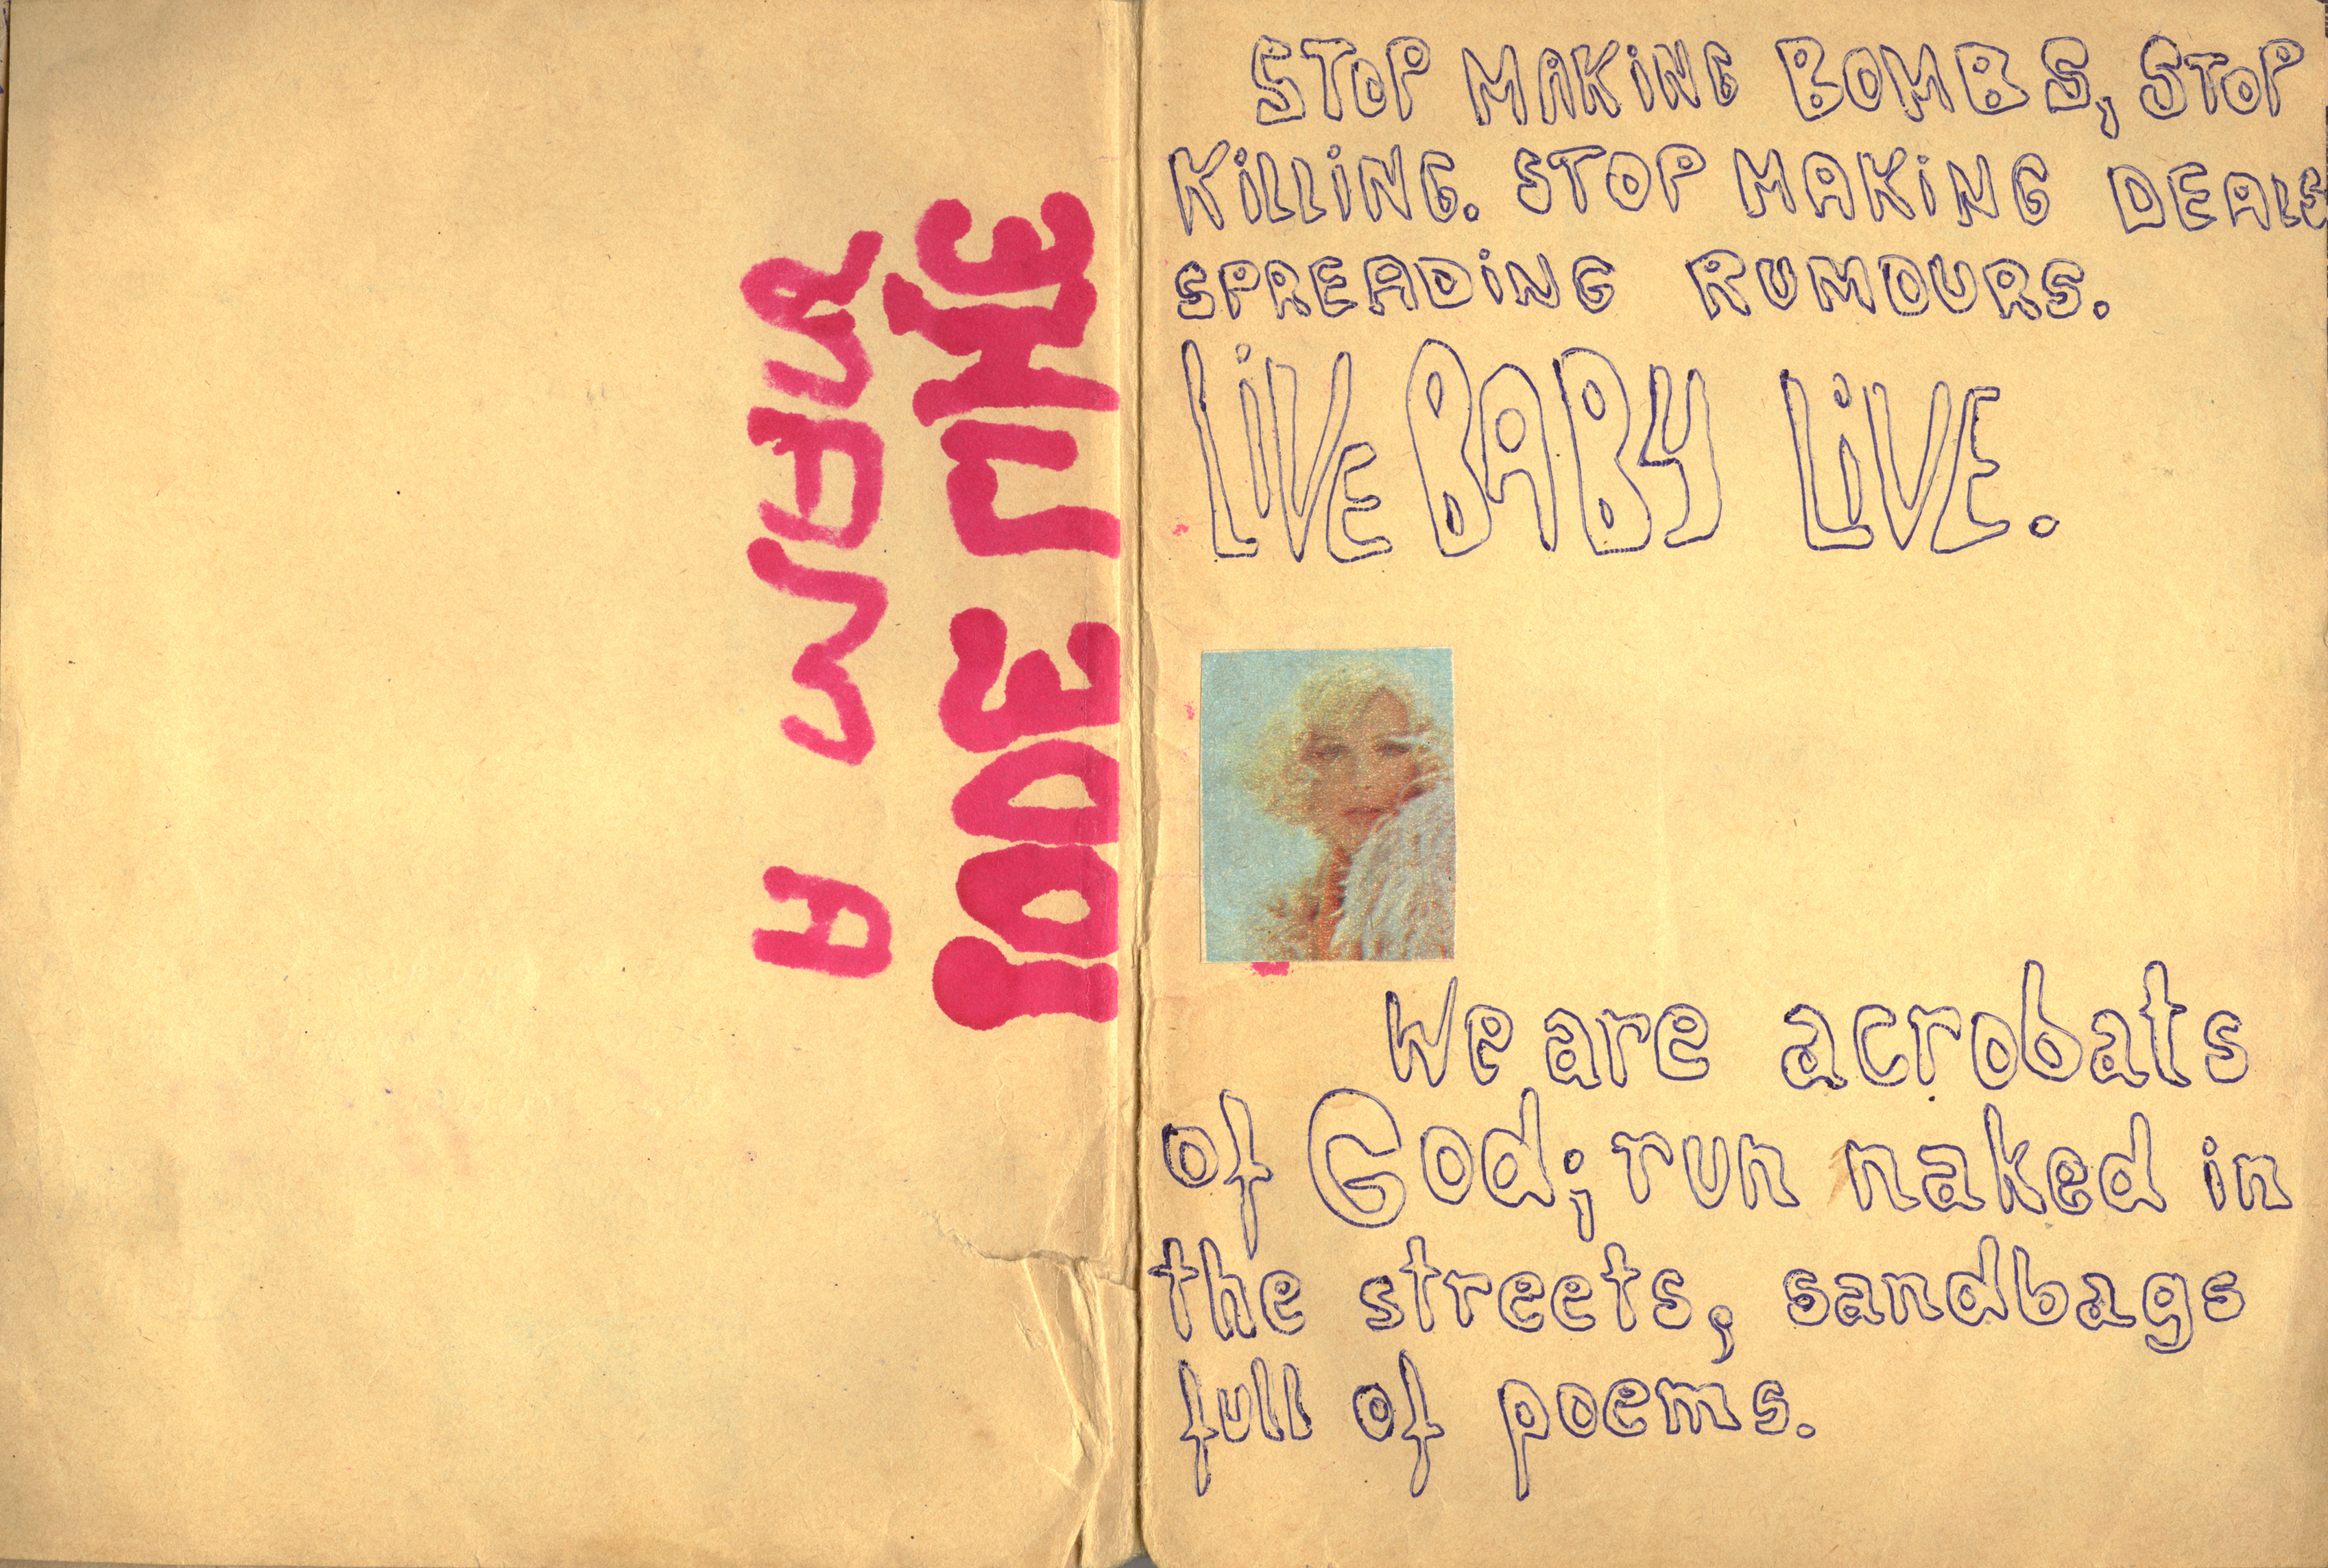 STOP MAKiNG BOMBS, STOP
KiLLiNG. STOP MAKiNG DEALS
SPREADiNG RUMOURS.
LiVE BABY LiVE.
We are acrobats
of God; run naked in
the streets, sandbags
full of poems.